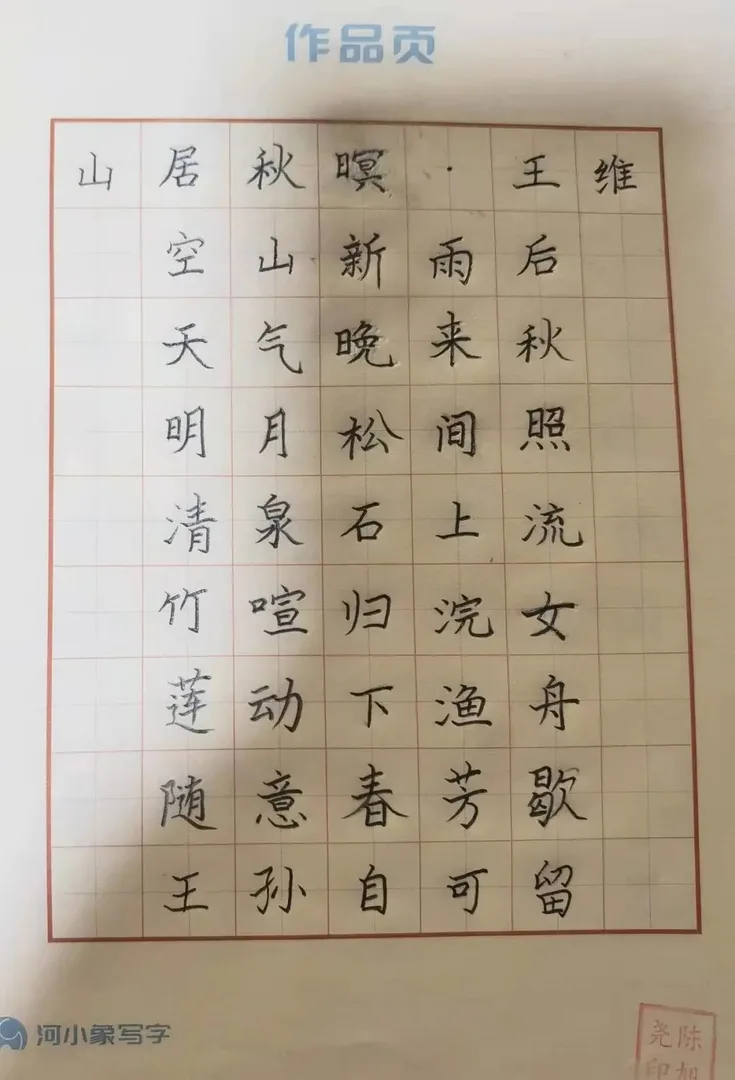 作品页
山居秋暝·王维
空山新雨后
天气晚来秋
明月松间照
清泉石上流
竹喧归浣女
莲动下渔舟
随意春芳歇
王孙自可留
河小象写字
尧陈
印旭